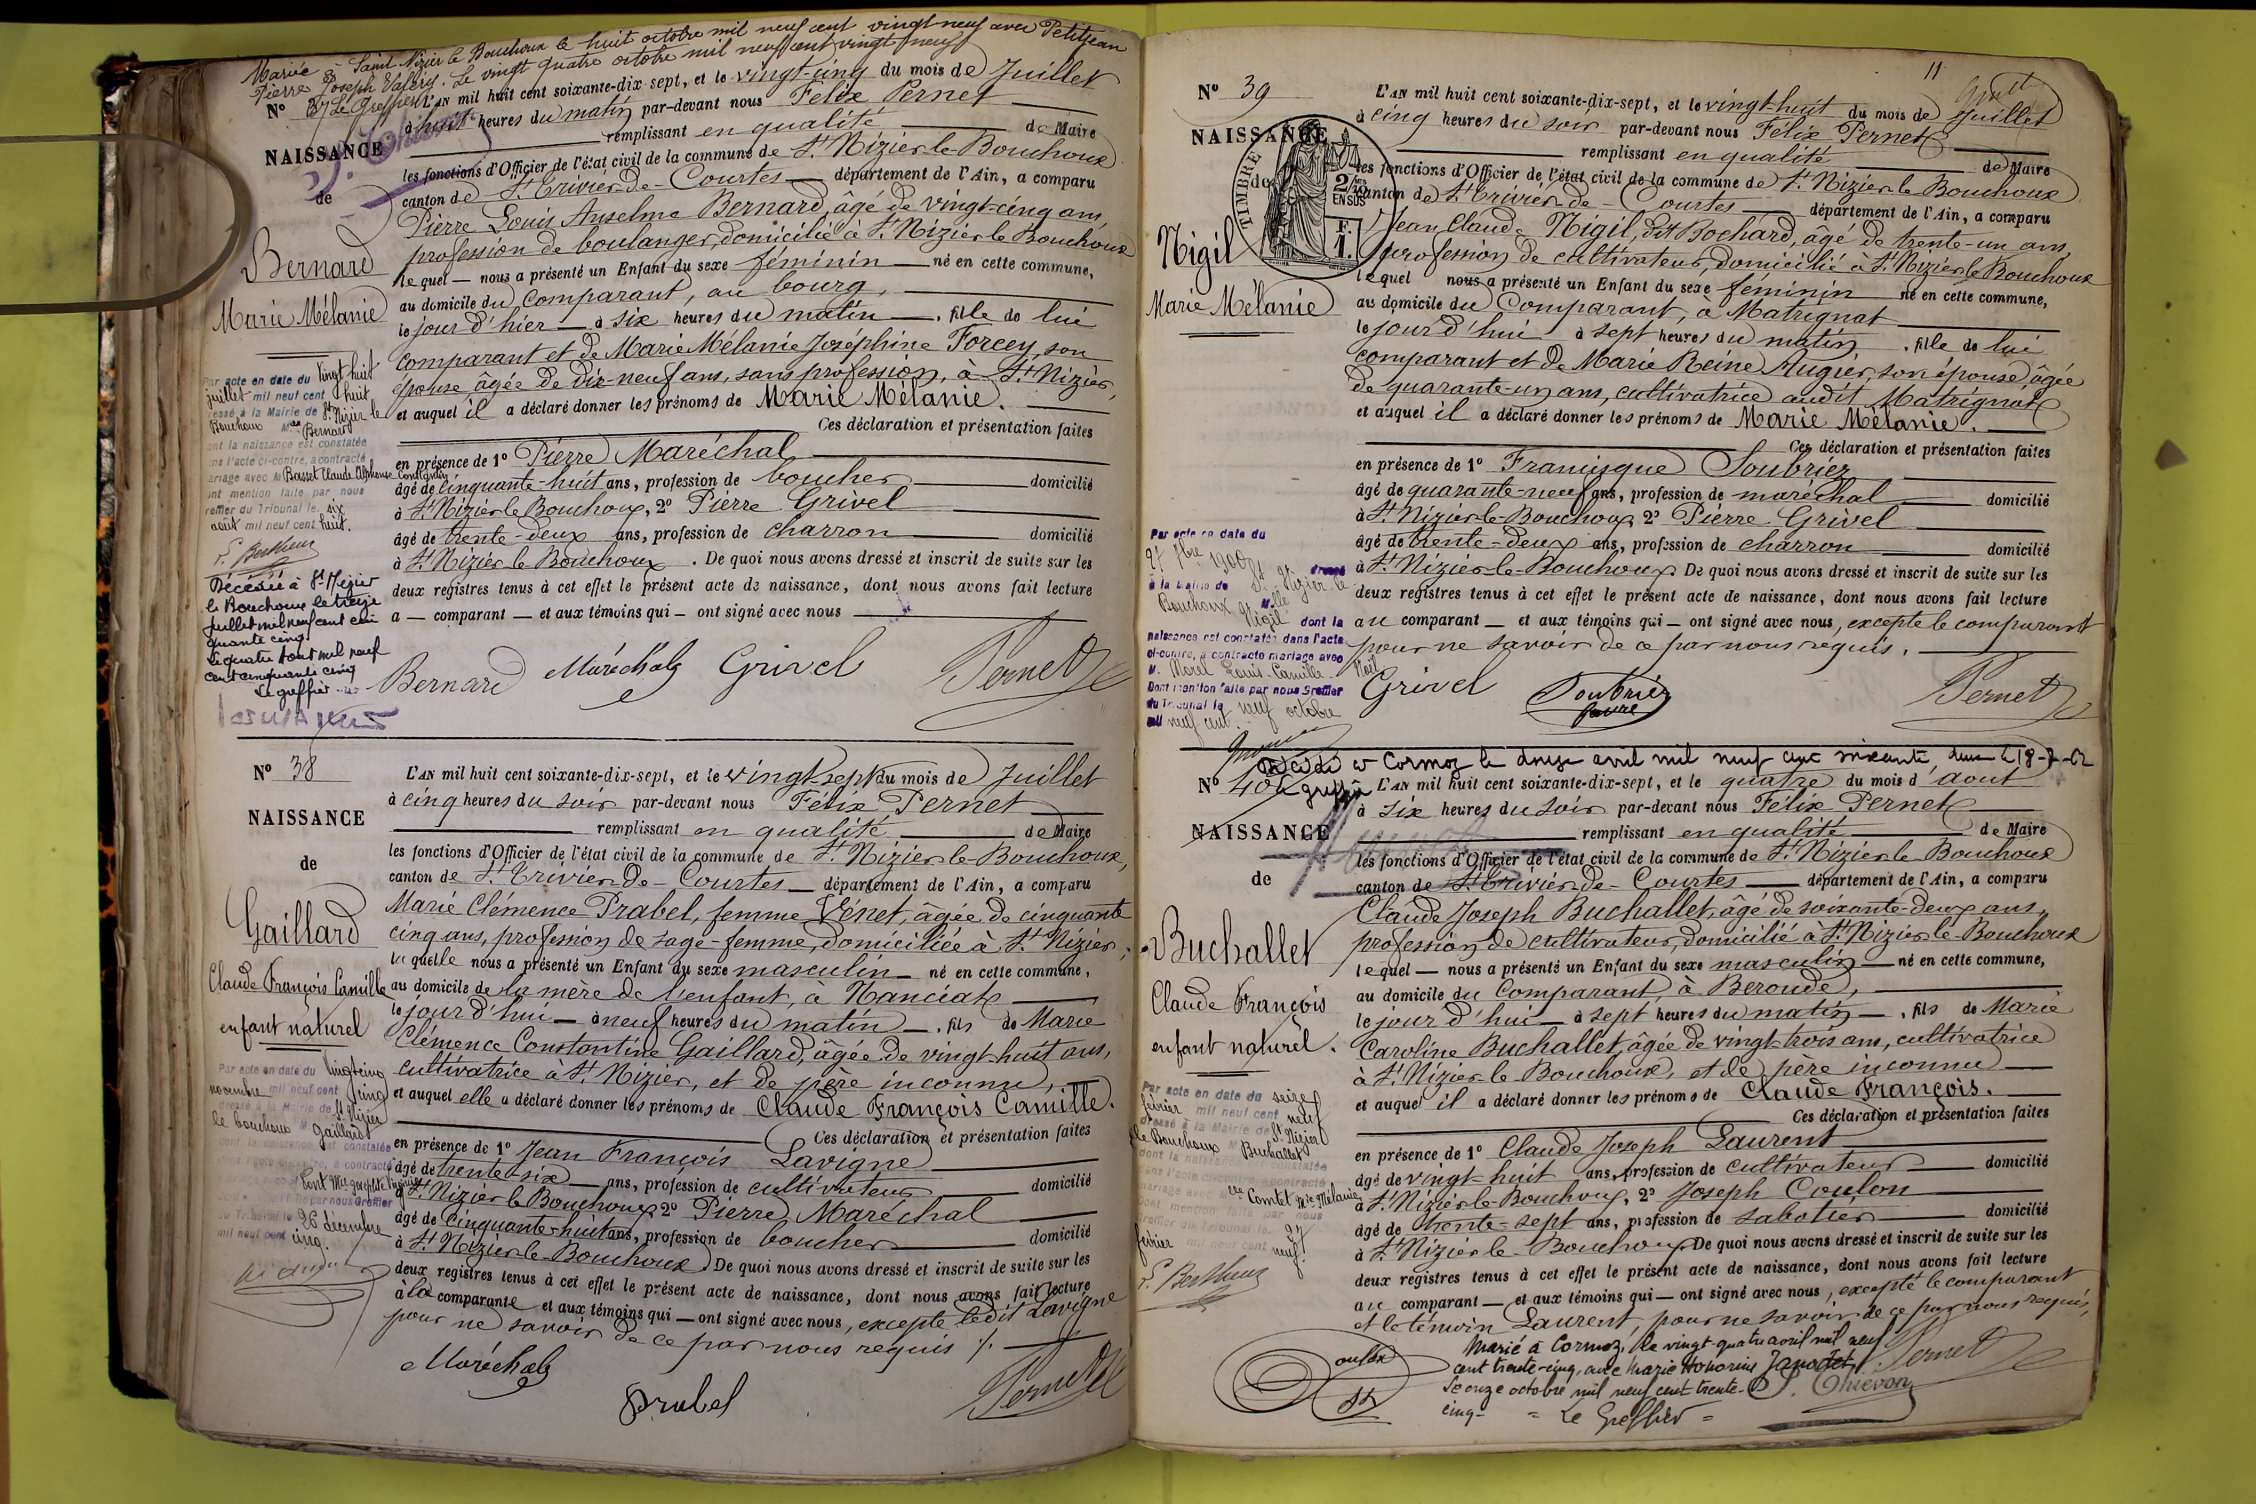 Mariée à Saint Nizier le Bouchoux le huit octobre mil neuf cent vingt neuf avec Petitjean
Pierre Joseph Valéry. Le vingt quatre octobre mil neuf cent vingt neuf
Le Greffier
N° 37
NAISSANCE
de
Bernard
Marie Mélanie
L'AN mil huit cent soixante-dix-sept, et le vingt-cinq du mois de Juillet
à huit heures du matin par-devant nous Félix Pernet
remplissant en qualité de Maire
les fonctions d'Officier de l'état civil de la commune de St Nizier le Bouchoux
canton de St Trivier-de-Courtes département de l'Ain, a comparu
Pierre Louis Anselme Bernard, âgé de vingt-cinq ans,
profession de boulanger, domicilié à St Nizier le Bouchoux
lequel nous a présenté un Enfant du sexe féminin né en cette commune,
au domicile du comparant, au bourg,
le jour d'hier à six heures du matin, fille de lui
comparant et de Marie Mélanie Joséphine Forcey, son
épouse âgée de dix-neuf ans, sans profession, à St Nizier,
et auquel il a déclaré donner les prénoms de Marie Mélanie.
Ces déclaration et présentation faites
en présence de 1° Pierre Maréchal
âgé de cinquante-huit ans, profession de boucher domicilié
à St Nizier le Bouchoux, 2° Pierre Grivel
âgé de trente-deux ans, profession de charron domicilié
à St Nizier le Bouchoux. De quoi nous avons dressé et inscrit de suite sur les
deux registres tenus à cet effet le présent acte de naissance, dont nous avons fait lecture
a comparant et aux témoins qui ont signé avec nous
Bernard Maréchal Grivel Pernet
Par acte en date du vingt huit
juillet mil neuf cent huit
dressé à la Mairie de St Nizier le
Bouchoux Mlle Bernard
dont la naissance est constatée
dans l'acte ci-contre, a contracté
mariage avec M Basset Claude Alphonse Constantin
dont mention faite par nous
Greffier du Tribunal le six
août mil neuf cent huit.
Décédée à St Nizier
le Bouchoux le treize
juillet mil neuf cent cin
quante cinq
Le quatre Août mil neuf
cent cinquante cinq
Le greffier
N° 38
NAISSANCE
de
Gaillard
Claude François Camille
enfant naturel
L'AN mil huit cent soixante-dix-sept, et le vingt-sept du mois de Juillet
à cinq heures du soir par-devant nous Félix Pernet
remplissant en qualité de Maire
les fonctions d'Officier de l'état civil de la commune de St Nizier-le-Bouchoux,
canton de St Trivier-de-Courtes département de l'Ain, a comparu
Marie Clémence Prabel, femme Vénet, âgée de cinquante
cinq ans, profession de sage-femme, domiciliée à St Nizier,
laquelle nous a présenté un Enfant du sexe masculin né en cette commune,
au domicile de la mère de l'enfant, à Nanciat
le jour d'hui à neuf heures du matin, fils de Marie
Clémence Constantine Gaillard, âgée de vingt-huit ans,
cultivatrice à St Nizier, et de père inconnu,
et auquel elle a déclaré donner les prénoms de Claude François Camille.
Ces déclaration et présentation faites
en présence de 1° Jean François Lavigne
âgé de trente-six ans, profession de cultivateur domicilié
à St Nizier le Bouchoux 2° Pierre Maréchal
âgé de cinquante-huit ans, profession de boucher domicilié
à St Nizier-le-Bouchoux De quoi nous avons dressé et inscrit de suite sur les
deux registres tenus à cet effet le présent acte de naissance, dont nous avons fait lecture
à la comparante et aux témoins qui ont signé avec nous, excepté ledit Lavigne
pour ne savoir de ce par nous requis.
Maréchal
Prabel Pernet
Par acte en date du vingt cinq
novembre mil neuf cent cinq
dressé à la Mairie de St Nizier
le bouchoux Gaillard
dont la naissance est constatée
26 décembre
mil neuf cent cinq.
11
N° 39
NAISSANCE
de
TIMBRE
2/10 EN SUS
F. 1.
Nigil
Marie Mélanie
L'AN mil huit cent soixante-dix-sept, et le vingt-huit du mois de Juillet
à cinq heures du soir par-devant nous Félix Pernet
remplissant en qualité de Maire
les fonctions d'Officier de l'état civil de la commune de St Nizier le Bouchoux
canton de St Trivier-de-Courtes département de l'Ain, a comparu
Jean Claude Nigil, dit Bochard, âgé de trente-un ans,
profession de cultivateur, domicilié à St Nizier le Bouchoux
lequel nous a présenté un Enfant du sexe féminin né en cette commune,
au domicile du Comparant, à Matrignat
le jour d'hui à sept heures du matin, fille de lui
comparant et de Marie Reine Augier, son épouse, âgée
de quarante-un ans, cultivatrice audit Matrignat
et auquel il a déclaré donner les prénoms de Marie Mélanie.
Ces déclaration et présentation faites
en présence de 1° Francisque Soubriez
âgé de quarante-neuf ans, profession de maréchal domicilié
à St Nizier-le-Bouchoux 2° Pierre Grivel
âgé de trente-deux ans, profession de charron domicilié
à St Nizier-le-Bouchoux. De quoi nous avons dressé et inscrit de suite sur les
deux registres tenus à cet effet le présent acte de naissance, dont nous avons fait lecture
au comparant et aux témoins qui ont signé avec nous, excepté le comparant
pour ne savoir de ce par nous requis.
Grivel Soubriez Pernet
Par acte en date du
27 7bre 1900 dressé
à la Mairie de St Nizier le
Bouchoux Mlle
Nigil dont la
naissance est constatée dans l'acte
ci-contre, a contracté mariage avec
M. Morel Louis Camille Noël
Dont mention faite par nous Greffier
du Tribunal le neuf octobre
mil neuf cent.
Décédé à Cormoz le douze avril mil neuf cent soixante deux
N° 40
NAISSANCE
de
Buchallet
Claude François
enfant naturel.
L'AN mil huit cent soixante-dix-sept, et le quatre du mois d'aout
à six heures du soir par-devant nous Félix Pernet
remplissant en qualité de Maire
les fonctions d'Officier de l'état civil de la commune de St Nizier le Bouchoux
canton de St Trivier-de-Courtes département de l'Ain, a comparu
Claude Joseph Buchallet, âgé de soixante-deux ans,
profession de cultivateur, domicilié à St Nizier-le-Bouchoux
lequel nous a présenté un Enfant du sexe masculin né en cette commune,
au domicile du Comparant à Beroude,
le jour d'hui à sept heures du matin, fils de Marie
Caroline Buchallet, âgée de vingt-trois ans, cultivatrice
à St Nizier-le Bouchoux, et de père inconnu
et auquel il a déclaré donner les prénoms de Claude François.
Ces déclaration et présentation faites
en présence de 1° Claude Joseph Laurent
âgé de vingt-huit ans, profession de cultivateur domicilié
à St Nizier-le-Bouchoux, 2° Joseph Coulon
âgé de trente-sept ans, profession de sabotier domicilié
à St Nizier-le-Bouchoux De quoi nous avons dressé et inscrit de suite sur les
deux registres tenus à cet effet le présent acte de naissance, dont nous avons fait lecture
au comparant et aux témoins qui ont signé avec nous, excepté le comparant
et le témoin Laurent, pour ne savoir de ce par nous requis.
Marié à Cormoz, le vingt-quatre avril mil neuf
cent trente-cinq, avec Marie Honorine Janodet
Le onze octobre mil neuf cent trente-
cinq- = Le Greffier =
Pernet
Par acte en date du seize
février mil neuf cent neuf
dressé à la Mairie de St Nizier
le Bouchoux M Buchallet
dont la naissance est constatée
Comtet Mie Mélanie
27
février mil neuf cent neuf.